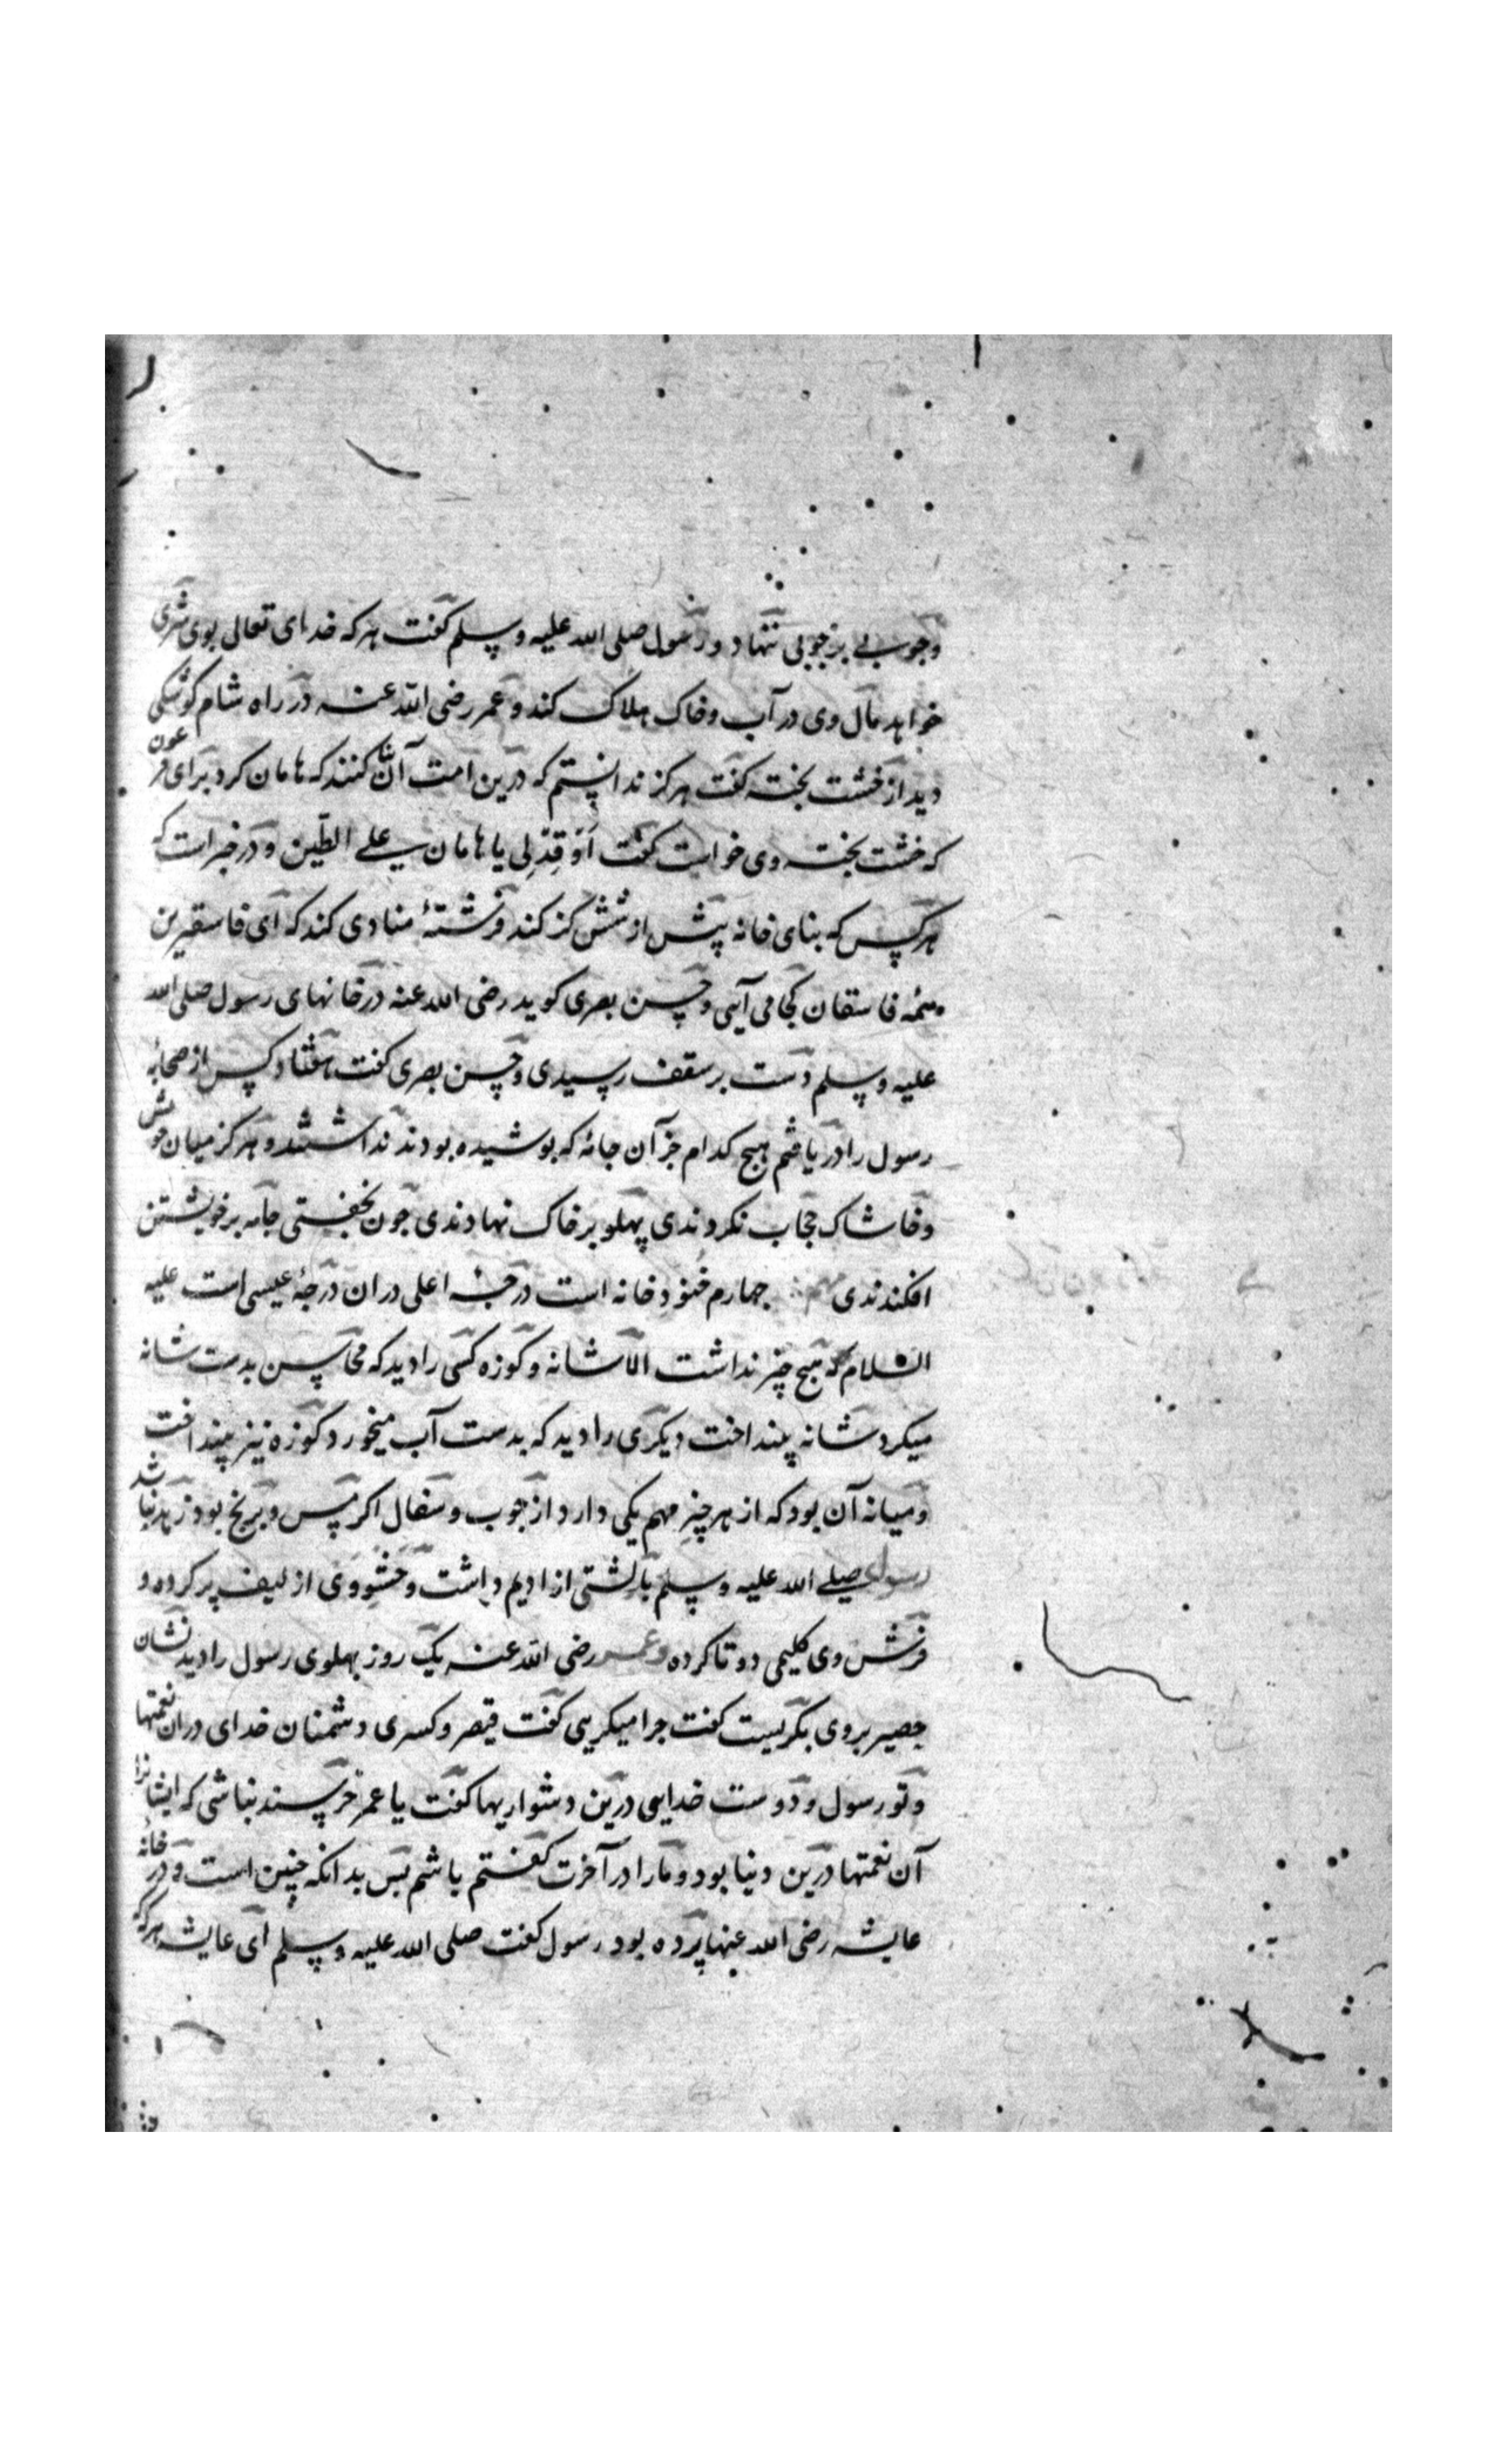 وچوبی بر چوبی ننهاد و رسول صلی الله علیه وسلم کفت هر که خدای تعالی بوی شری
خواهد مال وی در آب وخاک هلاک کند وعمر رضی الله عنه در راه شام کوشکی
دید از خشت پخته کفت هرکز ندانستم که درین امت آن بنا کنند که هامان کرد برای فرعون
که خشت پخته وی خواست کفت اوقد لی یا هامان علی الطین و در خبر است که
هرکس که بنای خانه بیش از شش کز کند فرشتۀ منادی کند که ای فاسقترین
همۀ فاسقان کجا می آیی وحسن بصری کوید رضی الله عنه در خانهای رسول صلی الله
علیه وسلم دست بر سقف رسیدی وحسن بصری کفت هفتاد کس از صحابۀ
رسول را دریافتم هیچ کدام جز آن جامۀ که پوشیده بودند نداشتند و هرکز میان خویش
وخاشاک حجاب نکردندی پهلو بر خاک نهادندی چون بخفتی جامه بر خویشتن
افکندندی مهم چهارم خنور خانه است درجۀ اعلی در ان درجۀ عیسی است علیه
السلام که هیچ چیز نداشت الا شانه و کوزه کسی را دید که محاسن بدست شانه
میکرد شانه بینداخت دیکری را دید که بدست آب میخورد کوزه نیز بینداخت
ومیانه آن بود که از هر چیز مهم یکی دارد از چوب وسفال اکر مس و برنج بود زهد نباشد
رسول صلی الله علیه وسلم بالشتی از ادیم داشت وحشو وی از لیف پر کرده و
فرش وی کلیمی دو تا کرده وعمر رضی الله عنه یک روز پهلوی رسول را دید نشان
حصیر بر وی بکریست کفت چرا میکریی کفت قیصر وکسری دشمنان خدای در ان نعمتها
وتو رسول ودوست خدایی درین دشواریها کفت یا عمر خرسند نباشی که ایشانرا
آن نعمتها درین دنیا بود و مارا در آخرت کفتم باشم بس بدانکه چنین است و در خانۀ
عایشه رضی الله عنها پرده بود رسول کفت صلی الله علیه وسلم ای عایشه هر که که